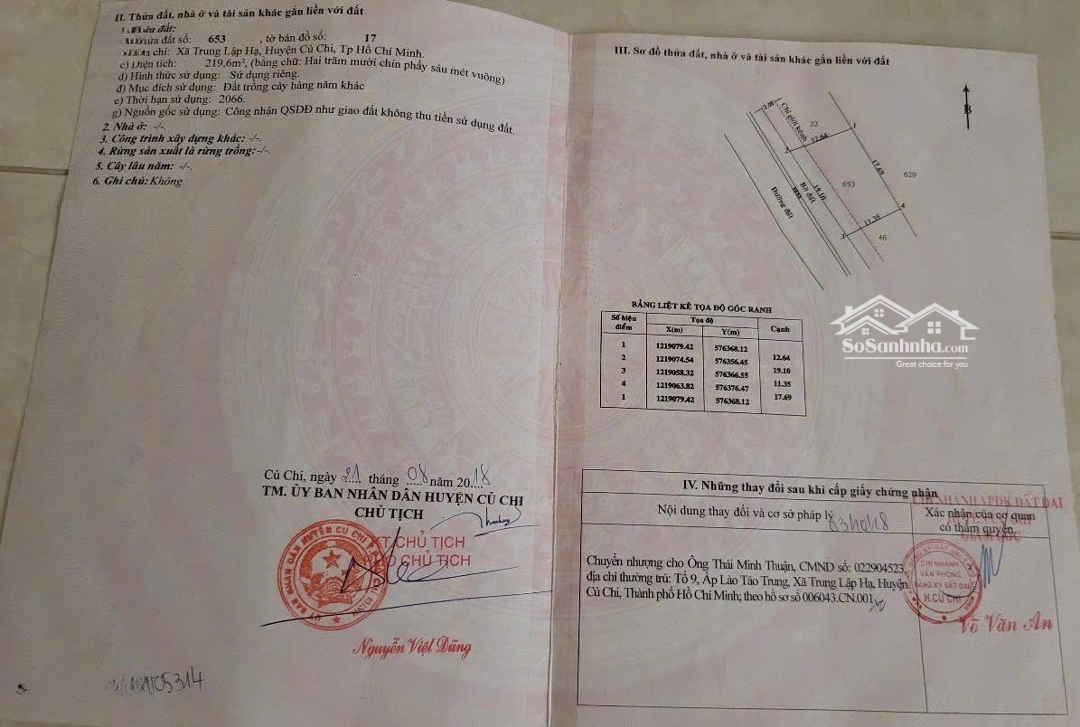 II. Thửa đất, nhà ở và tài sản khác gắn liền với đất
1. Thửa đất:
a) Thửa đất số: 653, tờ bản đồ số: 17
chỉ: Xã Trung Lập Hạ, Huyện Củ Chi, Tp Hồ Chí Minh.
c) Diện tích: 219,6m², (bằng chữ: Hai trăm mười chín phẩy sáu mét vuông)
d) Hình thức sử dụng: Sử dụng riêng.
đ) Mục đích sử dụng: Đất trồng cây hàng năm khác
e) Thời hạn sử dụng: 2066.
g) Nguồn gốc sử dụng: Công nhận QSDĐ như giao đất không thu tiền sử dụng đất.
2. Nhà ở: -/-.
3. Công trình xây dựng khác: -/-.
4. Rừng sản xuất là rừng trồng: -/-.
5. Cây lâu năm: -/-.
6. Ghi chú: Không.
Củ Chi, ngày 21 tháng 08 năm 2018
TM. ỦY BAN NHÂN DÂN HUYỆN CỦ CHI
CHỦ TỊCH
KT. CHỦ TỊCH
PHÓ CHỦ TỊCH
Nguyễn Việt Dũng
III. Sơ đồ thửa đất, nhà ở và tài sản khác gắn liền với đất
B
Chỉ giới kênh
22
12.64
1
2
17.69
629
653
19.10
Bờ đất
Đường đất
11.35
4
3
46
BẢNG LIỆT KÊ TỌA ĐỘ GÓC RANH
Số hiệu điểm Tọa độ Cạnh
X(m) Y(m)
1 1219079.42 576368.12
12.64
2 1219074.54 576356.45
19.10
3 1219058.32 576366.55
11.35
4 1219063.82 576376.47
17.69
1 1219079.42 576368.12
SoSanhnha.com
Great choice for you
IV. Những thay đổi sau khi cấp giấy chứng nhận
Nội dung thay đổi và cơ sở pháp lý
Xác nhận của cơ quan
có thẩm quyền
CHI NHÁNH VPĐK ĐẤT ĐAI
Chuyển nhượng cho Ông Thái Minh Thuận, CMND số: 022904523,
địa chỉ thường trú: Tổ 9, Ấp Lào Táo Trung, Xã Trung Lập Hạ, Huyện
Củ Chi, Thành phố Hồ Chí Minh; theo hồ sơ số 006043.CN.001
CHI NHÁNH
VĂN PHÒNG
ĐĂNG KÝ ĐẤT ĐAI
H.CỦ CHI
Võ Văn An